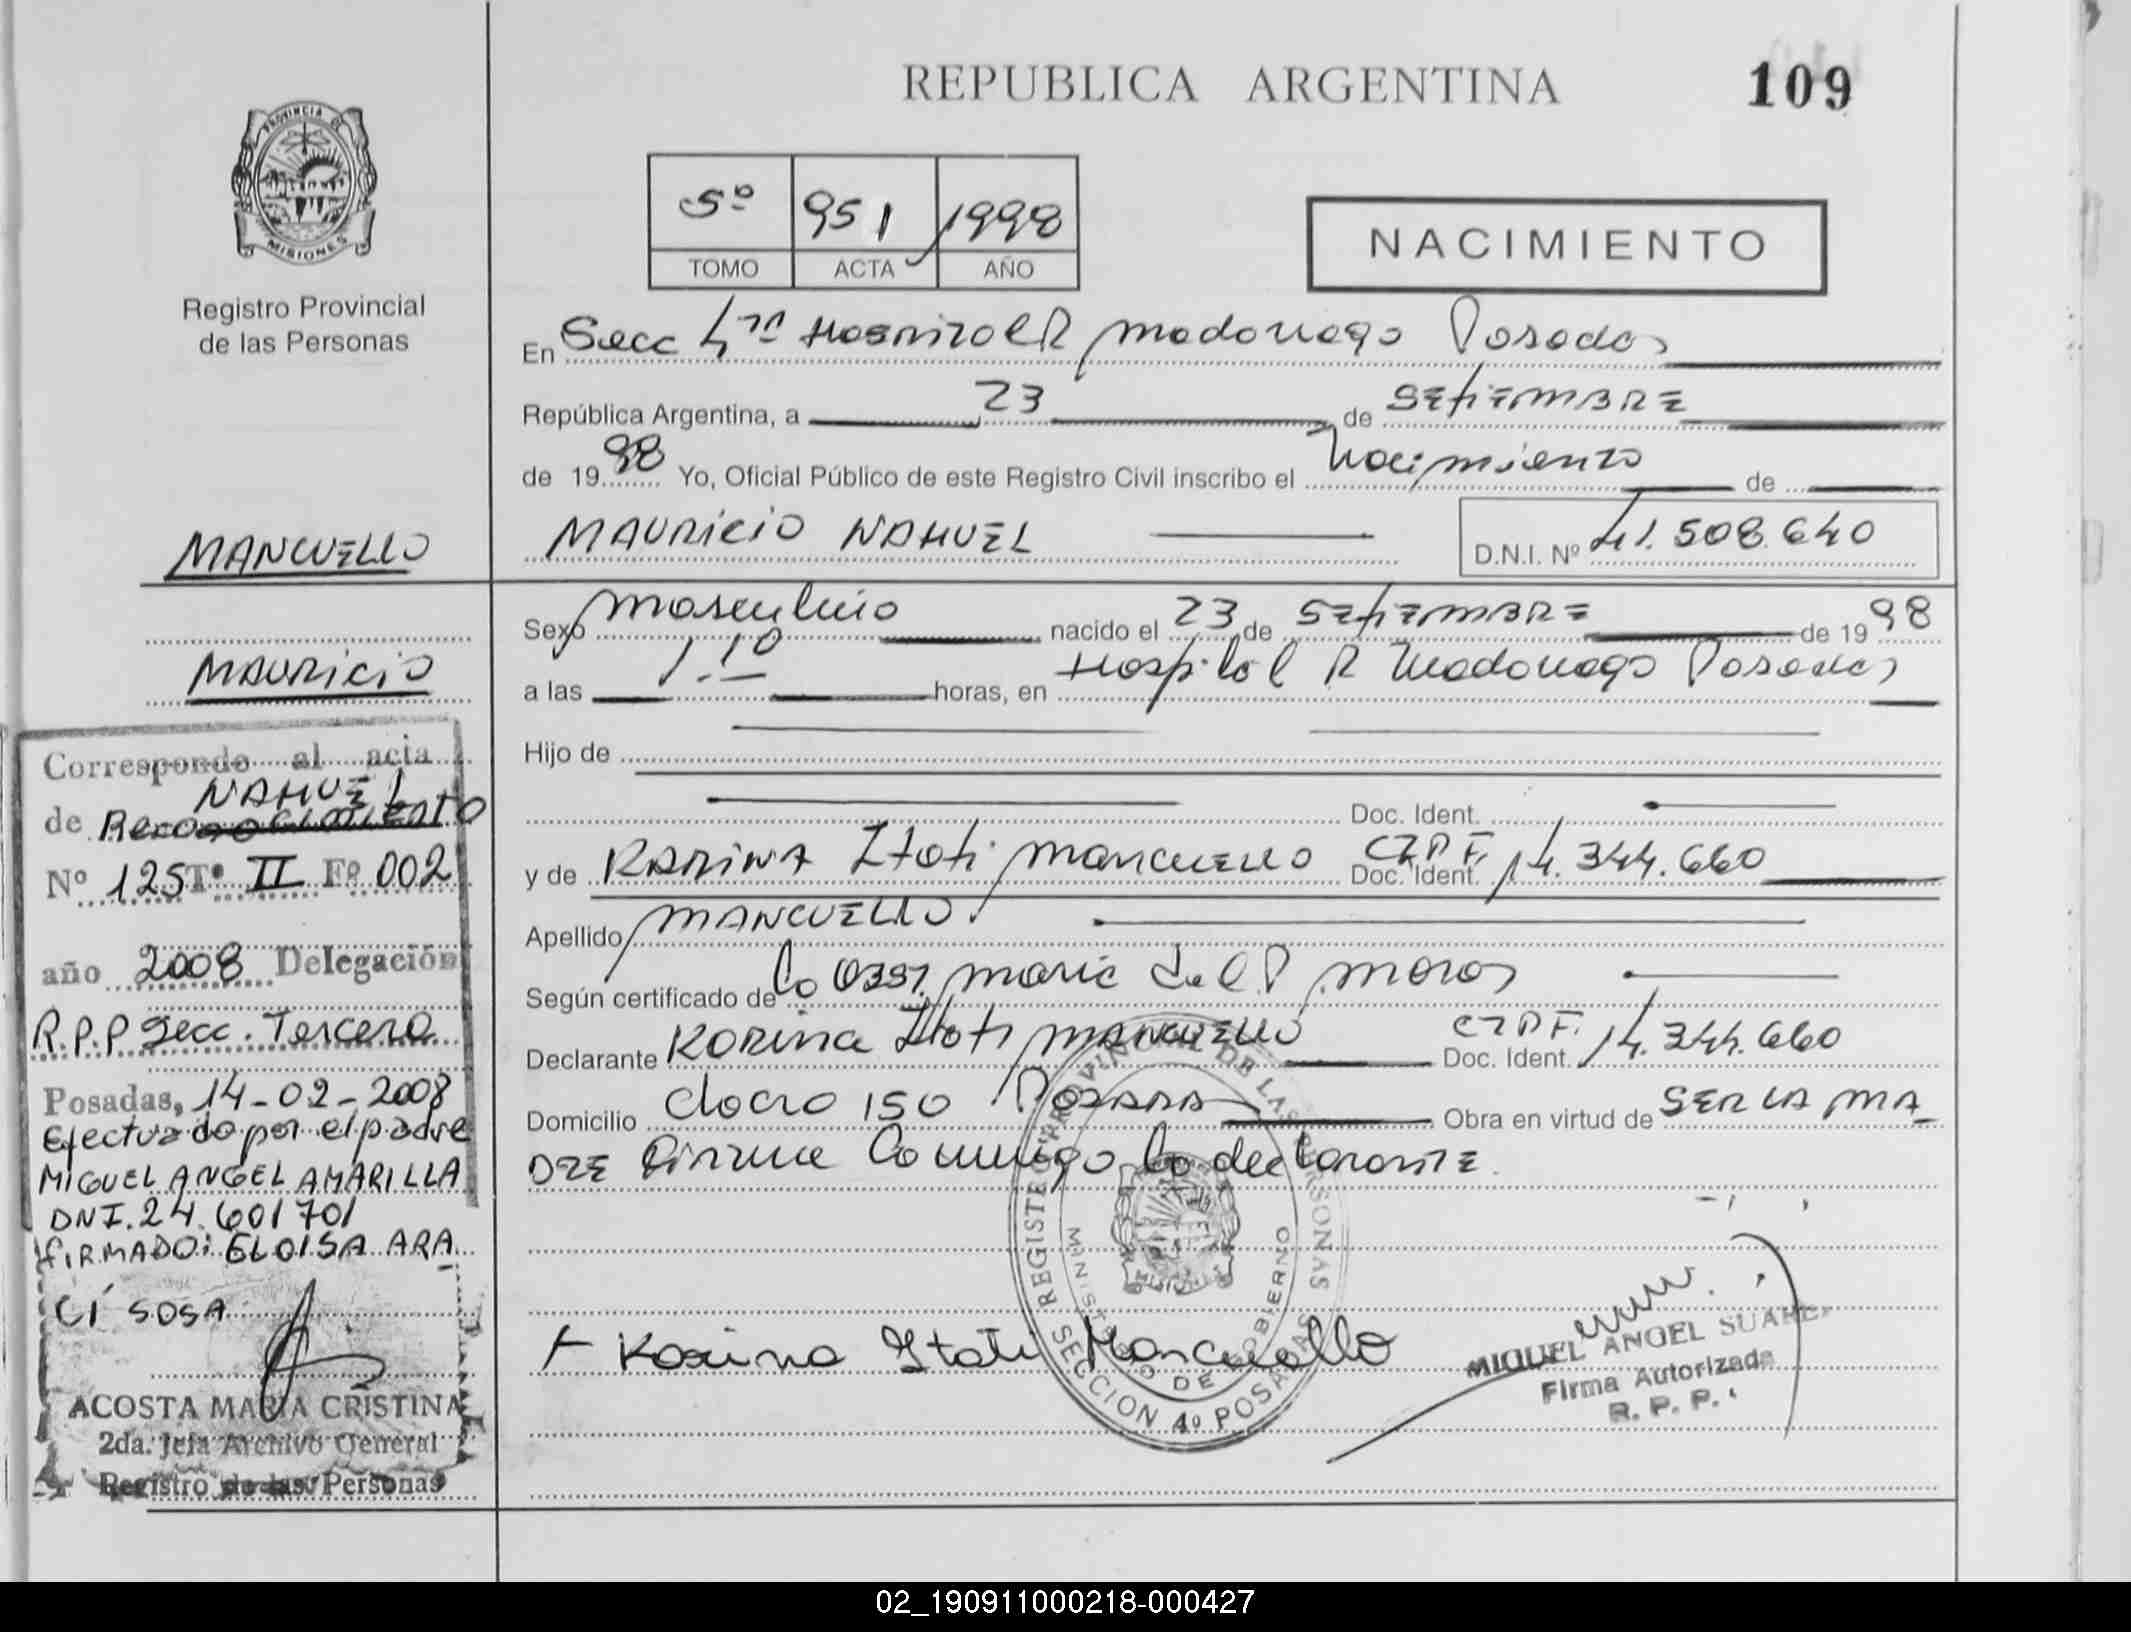 REPUBLICA ARGENTINA
109
PROVINCIA DE
MISIONES
Registro Provincial
de las Personas
5º 951 1998
TOMO ACTA AÑO
NACIMIENTO
En Secc 4ta Hospital R Madariaga Posadas
República Argentina, a 23 de SETIEMBRE
de 1998 Yo, Oficial Público de este Registro Civil inscribo el Nacimiento de
MAURICIO NAHUEL D.N.I. Nº 41.508.640
MANCUELLO
MAURICIO
NAHUEL
Sexo masculino nacido el 23 de SETIEMBRE de 1998
a las 1.10 horas, en Hospital R Madariaga Posadas
Hijo de
Doc. Ident.
y de KARINA Itati MANCUELLO Doc. Ident. 14.344.660
Apellido MANCUELLO
Según certificado de la Obst. maria del P.
Declarante Karina Itati MANCUELLO Doc. Ident. 14.344.660
Domicilio 150 POSADAS Obra en virtud de SER LA MA
DRE Firma Conmigo la declarante.
Karina Itati Mancuello
REGISTRO PROVINCIAL DE LAS PERSONAS
MINISTERIO DE GOBIERNO
SECCION 4º POSADAS
MIGUEL ANGEL SUAREZ
Firma Autorizada
R. P. P.
Corresponde al acta
de Reconocimiento
Nº 125 Tº II Fº 002
año 2008 Delegación
R.P.P Secc. Tercera
Posadas, 14-02-2008
Efectuado por el padre
MIGUEL ANGEL AMARILLA
DNI. 24.601701
FIRMADO: ELOISA ARA
CÍ SOSA
ACOSTA MARIA CRISTINA
2da. Jefa Archivo General
Registro de las Personas
02_190911000218-000427